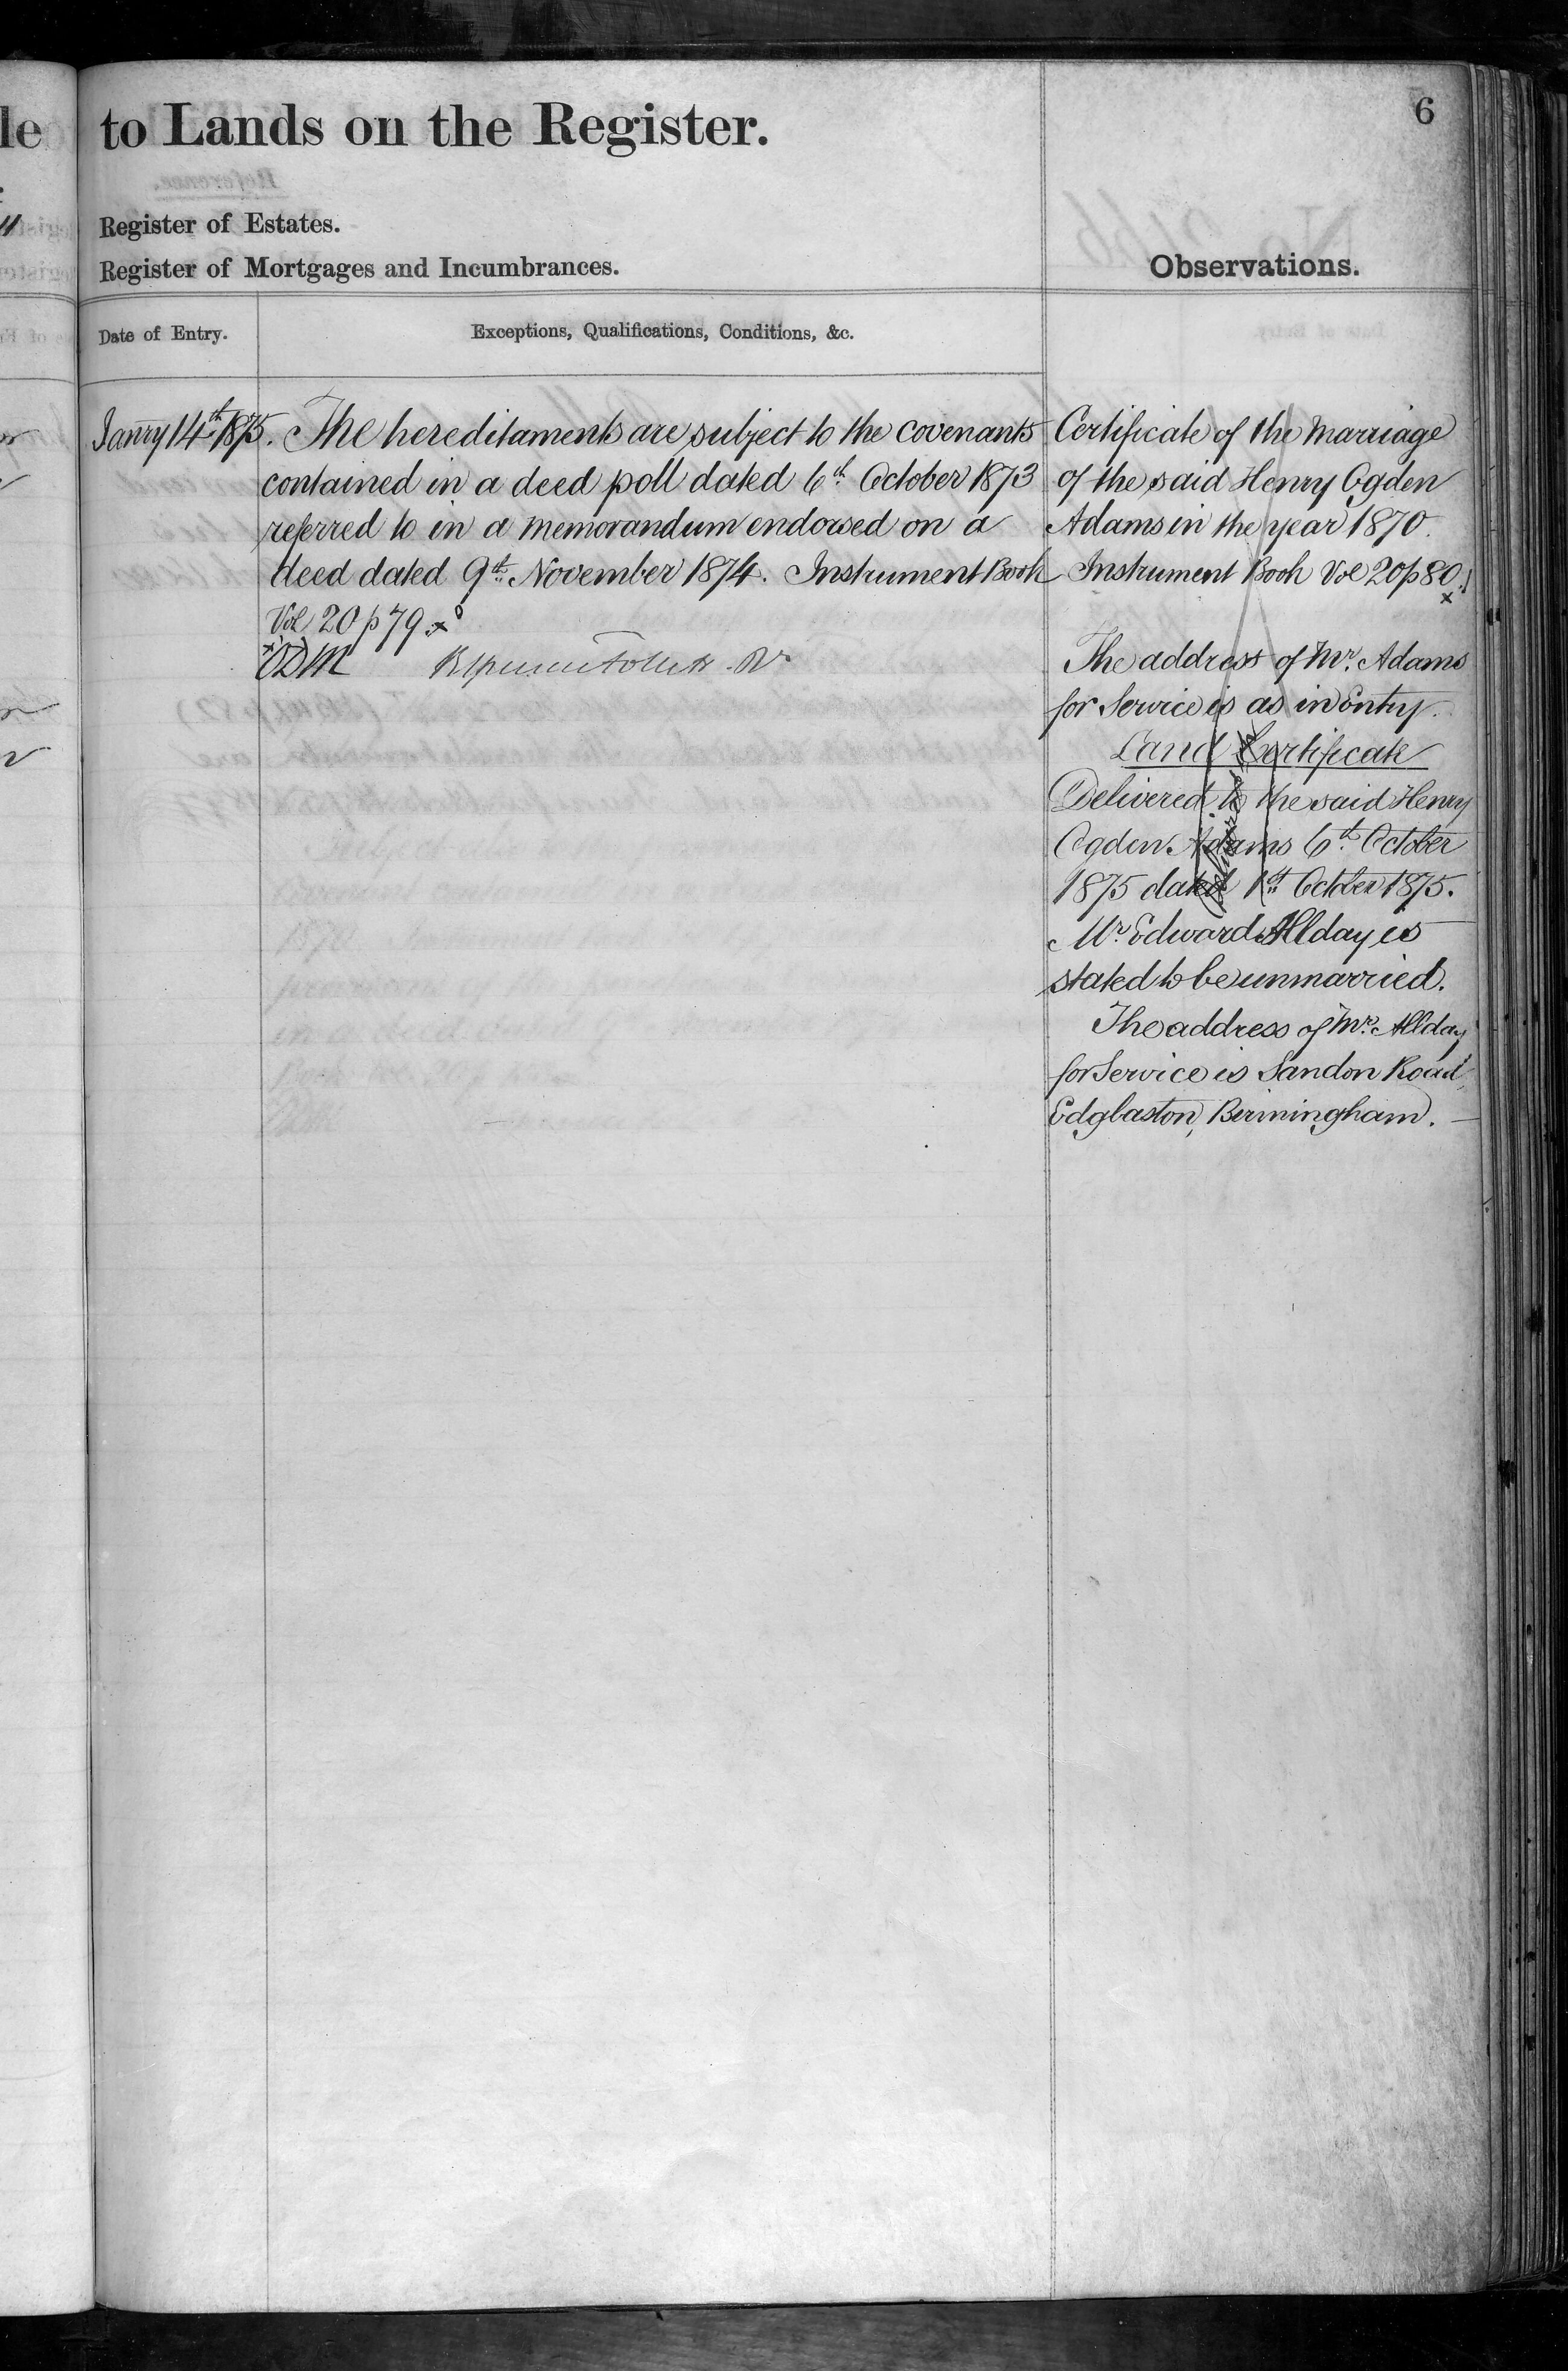 le
to Lands on the Register.
6
Register of Estates.
Register of Mortgages and Incumbrances.
Observations.
Date of Entry.
Exceptions, Qualifications, Conditions, &c.
Janry 14th 1875. The hereditaments are subject to the covenants
contained in a deed poll dated 6th October 1873
referred to in a memorandum endorsed on a
deed dated 9th November 1874. Instrument Book
Vol 20 p 79. x
Certificate of the Marriage
of the said Henry Ogden
Adams in the year 1870.
Instrument Book Vol 20 p 80.
x
The address of Mr. Adams
for Service is as in Entry.
Land Certificate
Delivered to the said Henry
Ogden Adams 6th October
1875 dated 1st October 1875.
Mr. Edward Allday is
stated to be unmarried.
The address of Mr. Allday
for Service is Sandon Road,
Edgbaston, Birmingham.